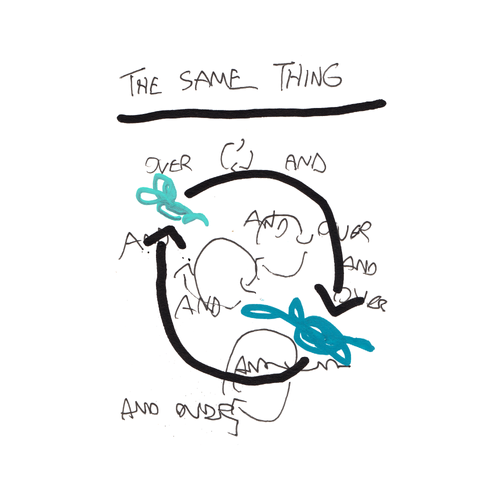 THE SAME THING
OVER (;) AND
AND OVER
AND
AND
OVER
AND
AND OVER